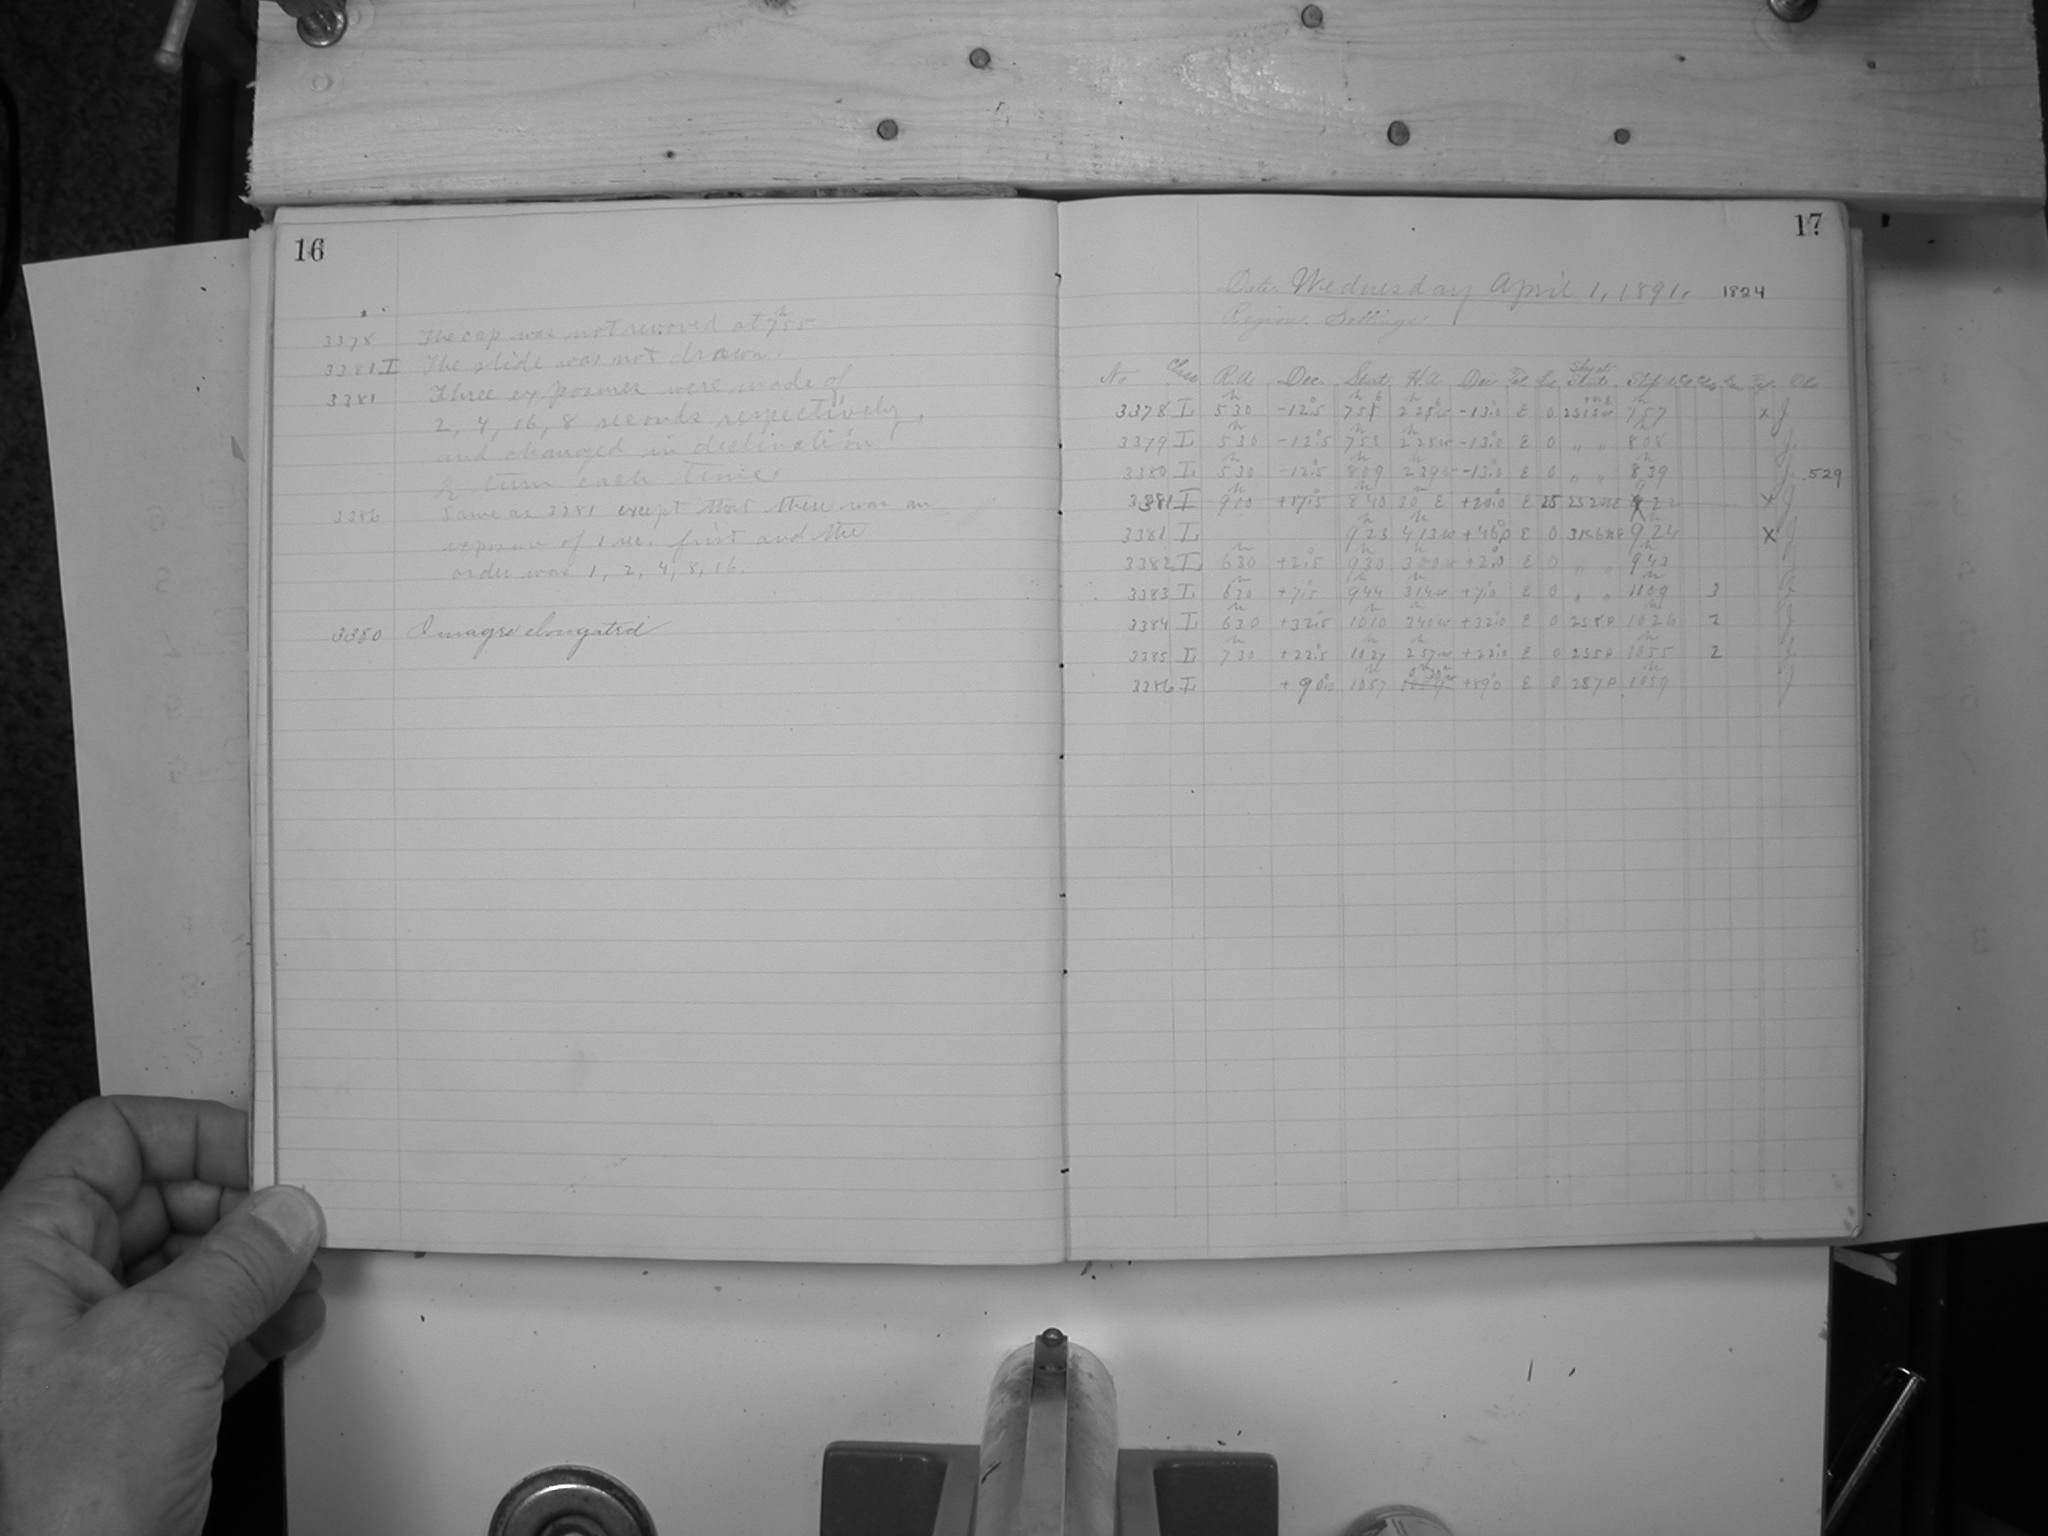 16
3378 The cap was not removed at 7h55
3381 I The slide was not drawn.
3381 Three exposures were made of
2, 4, 16, 8 seconds respectively,
and changed in declination
½ turn each time.
3386 Same as 3381 except that there was an
exposure of 1 sec. first and the
order was 1, 2, 4, 8, 16.
3380 Images elongated
17
Date. Wednesday April 1, 1891. 1824
Region. Settings
No Class R.A. Dec. Start H.A. Dec Tel Stop Obs
3378 I 5h30 -12°5 -13°0 E 0 7h57 x J
3379 I 5h30 -12°5 7h58 2h28w -13°0 E 0 " " 8h08 J.
3380 I 5h30 -12°5 8h09 2h39w -13°0 E 0 " " 8h39 J. .529
3381 I 9h10 +17°5 8h40 20m E +20°0 E 25 x J
3381 I 9h23 4h13w E 0 9h24 x J
3382 I 6h30 +2°5 9h30 3h00w +2°0 E 0 " " 9h43 J
3383 I 6h30 +7°5 9h44 3h14w +7°0 E 0 " " 3 J
3384 I 6h30 +32°5 10h10 3h40w +32°0 E 0 10h26 2 J
3385 I 7h30 +22°5 10h27 2h57w +22°0 E 0 10h55 2 J
3386 I +90°0 10h57 +89°0 E 0 10h59 J